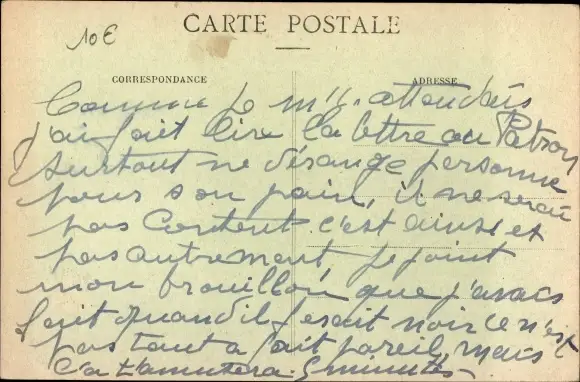 10€
CARTE POSTALE
CORRESPONDANCE
ADRESSE
Comme je m'y attendais
j'ai fait lire la lettre au Patron
surtout ne dérange personne
pour son pain, il ne serait
pas content c'est ainsi et
pas autrement je joint
mon brouillon que j'avais
fait quand il fesait noir ce n'est
pas tout a fait pareil, mais
Ca t'amusera 5 minutes